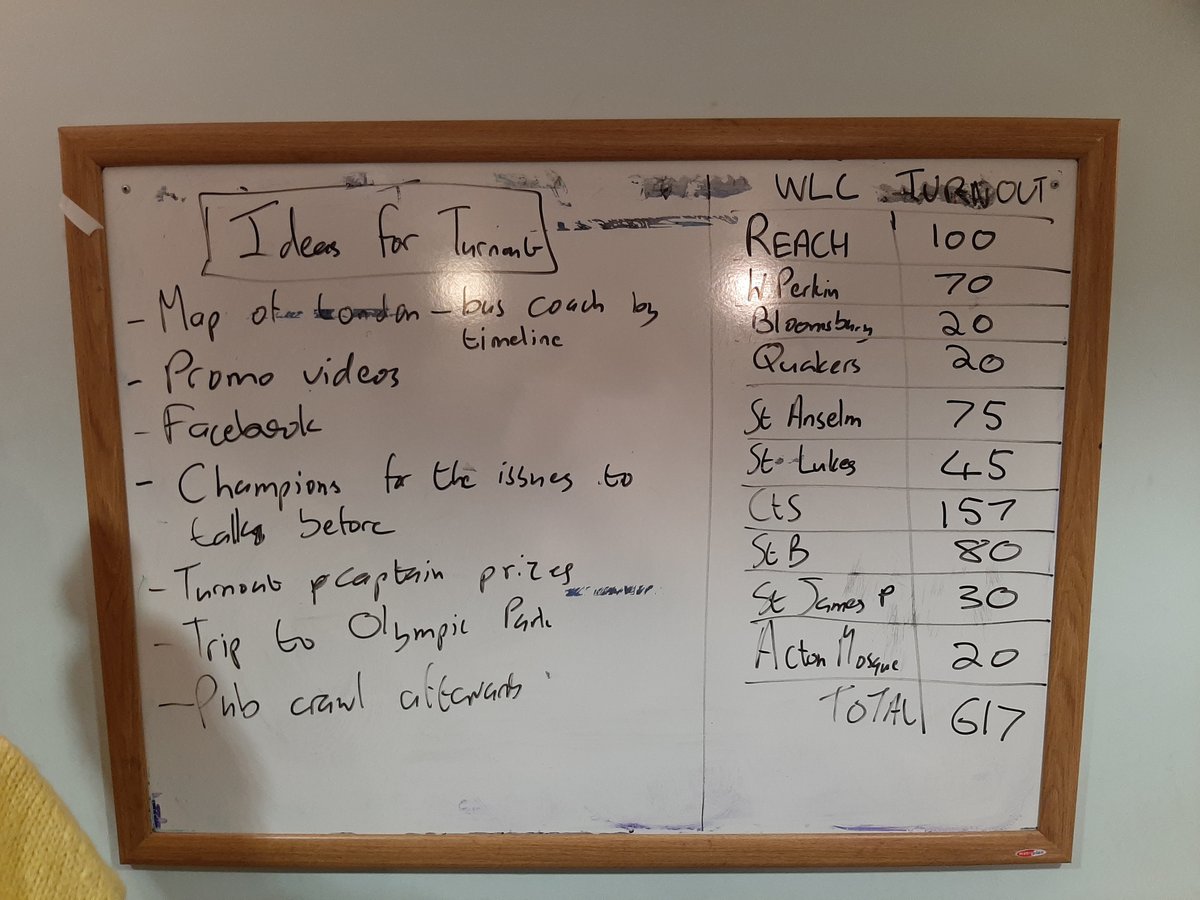 Ideas for Turnout
- Map of London - bus coach by
timeline
- Promo videos
- Facebook
- Champions for the issues to
talk before
- Turnout captain prizes
- Trip to Olympic Park
- Pub crawl afterwards
WLC TURNOUT
REACH 100
W Perkin 70
Bloomsbury 20
Quakers 20
St Anselm 75
St Lukes 45
CtS 157
St B 80
St James P 30
Acton Mosque 20
TOTAL 617